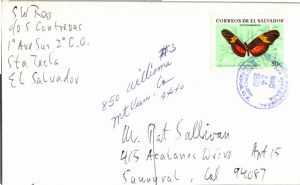 SW Ross
do S Contreras
1ª Ave Sur. 2ª C.O.
Sta Tecla
El Salvador
CORREOS DE EL SALVADOR
#3
850 williams
Mt View Ca
M. Pat Sullivan
415 Acalanes Drive Apt 15
Sunnyval, Cal 94087